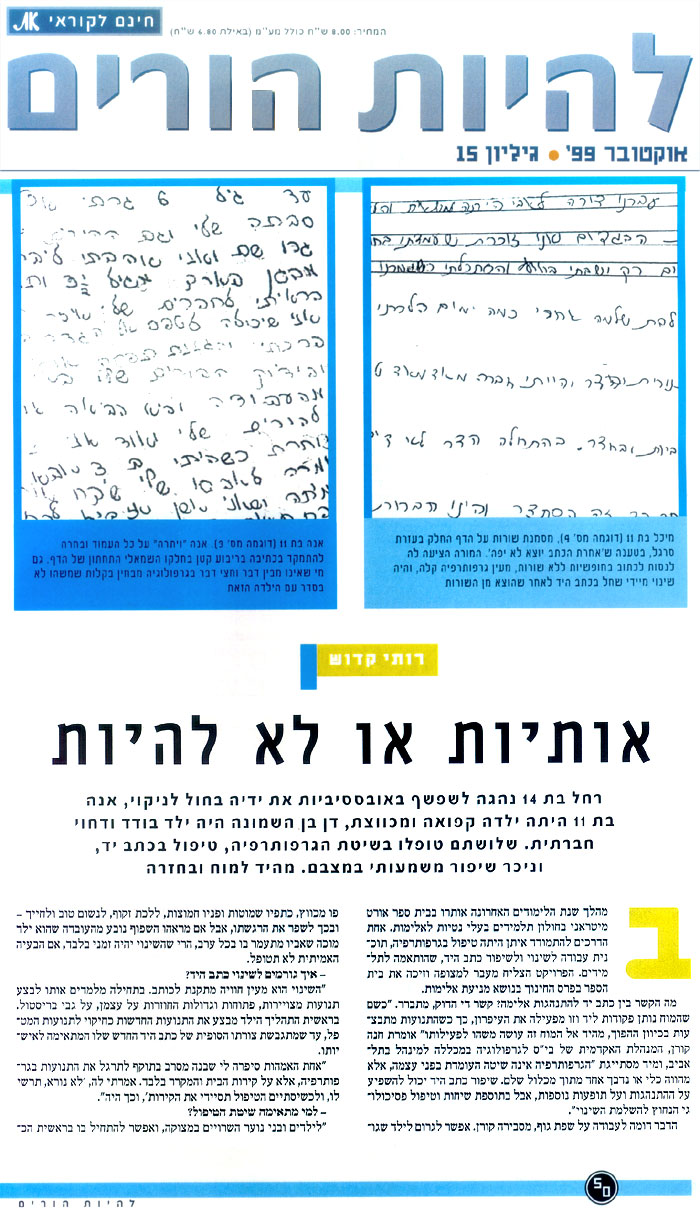 חינם לקוראי
המחיר: 8.00 ש"ח כולל מע"מ (באילת 6.80 ש"ח)
להיות הורים
אוקטובר 99' • גיליון 15
עברנו דירה
הבגדים אני זוכרת שעמדתי
ים רק ישבתי
לבת שלמה אחרי כמה ימים הלכתי
והייתי חברה מאוד מאוד ט
ביות ובחצר. בהתחלה הדר לא
זה הסתדר והינו חברות
עד גיל 6 גרתי
סבתה שלי וגם
גרו שם ואני אהבתי
לחברים שלי
אני שיכולה לטפס
להורים שלי
כשהייתי
מיכל בת 11 (דוגמה מס' 4), מסמנת שורות על הדף החלק בעזרת
סרגל, בטענה ש'אחרת הכתב יוצא לא יפה'. המורה הציעה לה
לנסות לכתוב בחופשיות ללא שורות, מעין גרפותרפיה קלה, והיה
שינוי מיידי שחל בכתב היד לאחר שהוצא מן השורות
אנה בת 11 (דוגמה מס' 3). אנה "ויתרה" על כל העמוד ובחרה
להתמקד בכתיבה בריבוע קטן בחלקו השמאלי התחתון של הדף. גם
מי שאינו מבין דבר וחצי דבר בגרפולוגיה מבחין בקלות שמשהו לא
בסדר עם הילדה הזאת
רותי קדוש
אותיות או לא להיות
רחל בת 14 נהגה לשפשף באובססיביות את ידיה בחול לניקוי, אנה
בת 11 היתה ילדה קפואה ומכווצת, דן בן השמונה היה ילד בודד ודחוי
חברתית. שלושתם טופלו בשיטת הגרפותרפיה, טיפול בכתב יד,
וניכר שיפור משמעותי במצבם. מהיד למוח ובחזרה
במהלך שנת הלימודים האחרונה אותרו בבית ספר אורט
מיטראני בחולון תלמידים בעלי נטיות לאלימות. אחת
הדרכים להתמודד איתן היתה טיפול בגרפותרפיה, תוכ־
נית עבודה לשינוי ולשיפור כתב היד, שהותאמה לתל־
מידים. הפרויקט הצליח מעבר למצופה וזיכה את בית
הספר בפרס החינוך בנושא מניעת אלימות.
מה הקשר בין כתב יד להתנהגות אלימה? קשר די הדוק, מתברר. "כשם
שהמוח נותן פקודות ליד וזו מפעילה את העיפרון, כך כשהתנועות מתבצ־
עות בכיוון ההפוך, מהיד אל המוח זה עושה משהו לפעילותו" אומרת חנה
קורן, המנהלת האקדמית של בי"ס לגרפולוגיה במכללה למינהל בתל־
אביב, ומיד מסתייגת "הגרפותרפיה אינה שיטה העומדת בפני עצמה, אלא
מהווה כלי או נדבך אחד מתוך מכלול שלם. שיפור כתב היד יכול להשפיע
על ההתנהגות ועל תופעות נוספות, אבל בתוספת שיחות וטיפול פסיכולו־
גי הנחוץ להשלמת השינוי".
הדבר דומה לעבודה על שפת גוף, מסבירה קורן. אפשר לגרום לילד שגו־
פו מכווץ, כתפיו שמוטות ופניו חמוצות, ללכת זקוף, לנשום טוב ולחייך –
ובכך לשפר את הרגשתו, אבל אם מראהו השפוף נובע מהעובדה שהוא ילד
מוכה שאביו מתעמר בו בכל ערב, הרי שהשינוי יהיה זמני בלבד, אם הבעיה
האמיתית לא תטופל.
– איך גורמים לשינוי כתב היד?
"השינוי הוא מעין חוויה מתקנת לכותב. בתחילה מלמדים אותו לבצע
תנועות מצויירות, פתוחות וגדולות החוזרות על עצמן, על גבי בריסטול.
בראשית התהליך הילד מבצע את התנועות החדשות כחיקוי לתנועות המט־
פל, עד שמתגבשת צורתו הסופית של כתב היד החדש שלו המתאימה לאיש־
יותו.
"אחת האמהות סיפרה לי שבנה מסרב בתוקף לתרגל את התנועות בגר־
פותרפיה, אלא על קירות הבית והמקרר בלבד. אמרתי לה, 'לא נורא, תרשי
לו, ולכשיסתיים הטיפול תסיידי את הקירות', וכך היה".
– למי מתאימה שיטת הטיפול?
"לילדים ובני נוער השרויים במצוקה, ואפשר להתחיל בו בראשית הכ־
50
להיות הורים